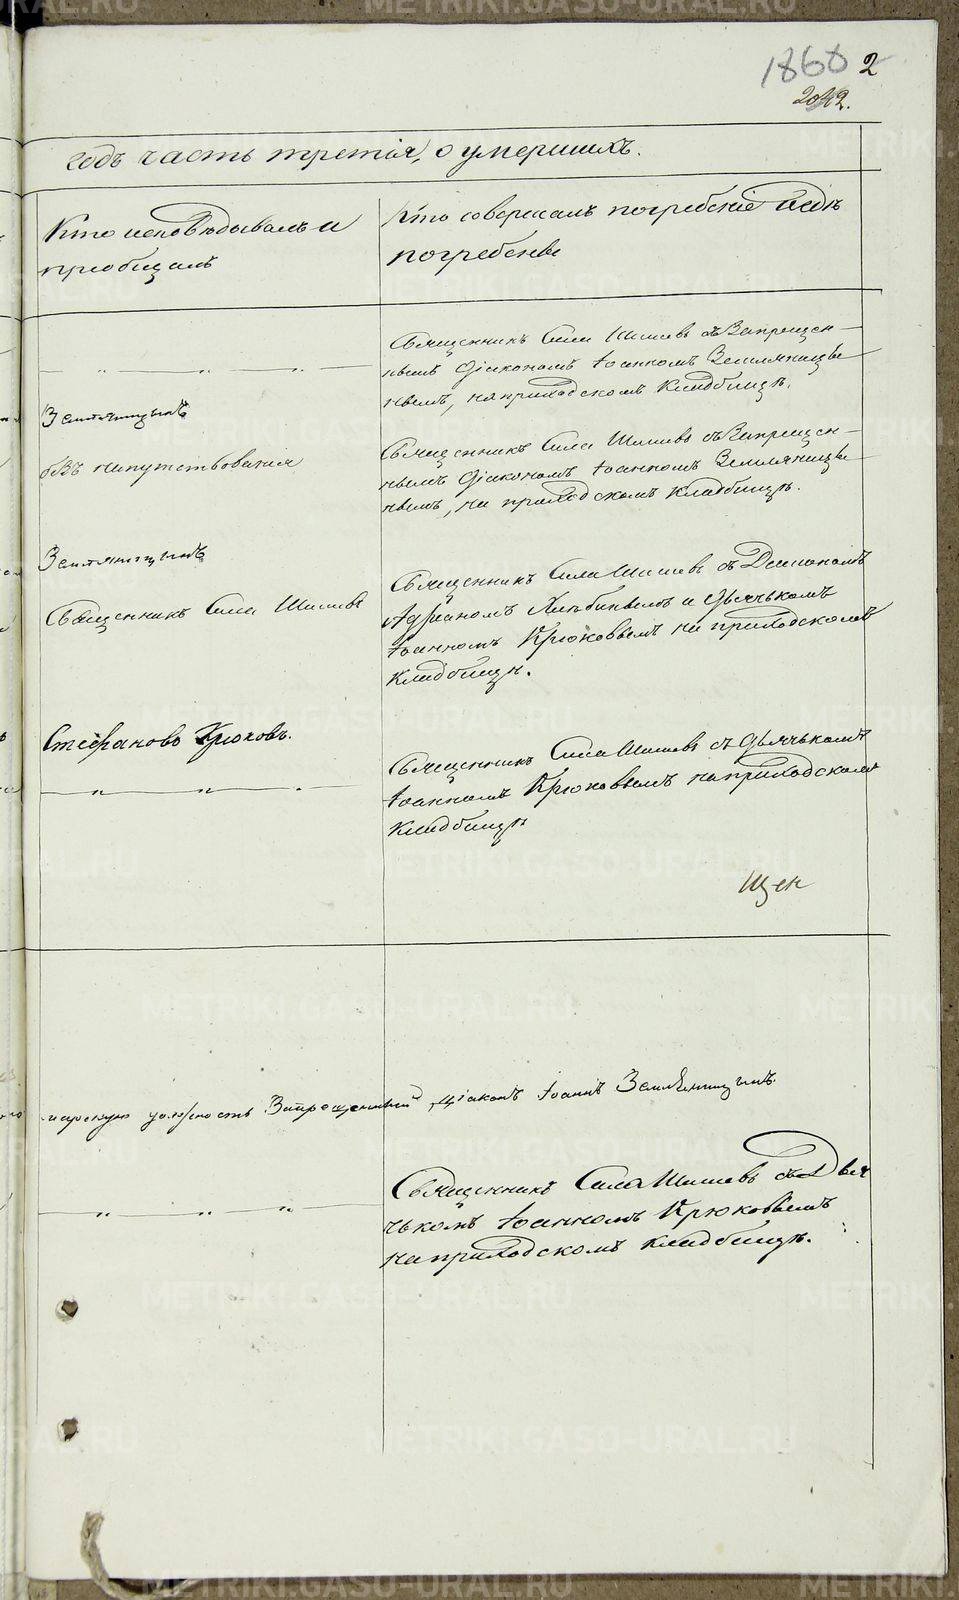 1868 2
годъ часть третія, о умершихъ.
Кто исповѣдывалъ и
пріобщалъ
Кто совершалъ погребеніе и гдѣ
погребены
Священникъ Сила Шишевъ съ Запрещен-
нымъ Діакономъ Іоанномъ Земляницы-
нымъ, на приходскомъ Кладбищѣ.
Земляницынъ
безъ напутствованія
Священникъ Сила Шишевъ съ Запрещен-
нымъ Діакономъ Іоанномъ Земляницы-
нымъ, на приходскомъ Кладбищѣ.
Земляницынъ
Священникъ Сила Шишевъ
Священникъ Сила Шишевъ съ Діакономъ
Адріаномъ и Дьячькомъ
Іоанномъ Крюковымъ на приходскомъ
Кладбищѣ.
Стефановъ Крюковъ.
Священникъ Сила Шишевъ съ Дьячькомъ
Іоанномъ Крюковымъ на приходскомъ
Кладбищѣ
щен
Запрещенный Діаконъ Іоаннъ Земляницынъ.
Священникъ Сила Шишевъ съ Дья-
чькомъ Іоанномъ Крюковымъ
на приходскомъ кладбищѣ.
METRIKI.GASO-URAL.RU